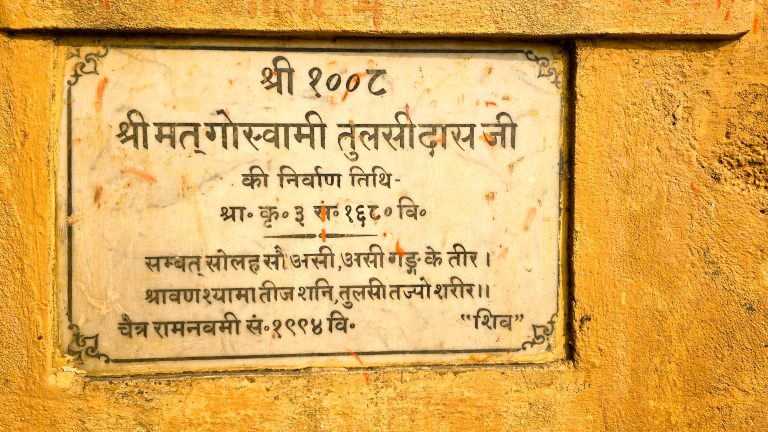 श्री १००८
श्रीमत्गोस्वामी तुलसीदास जी
की निर्वाण तिथि-
श्रा॰ कृ॰ ३ सं॰ १६८० वि॰
सम्बत् सोलह सौ असी, असी गङ्ग के तीर।
श्रावण श्यामा तीज शनि, तुलसी तज्यो शरीर।।
चैत्र रामनवमी सं॰ १९९४ वि॰ "शिब"